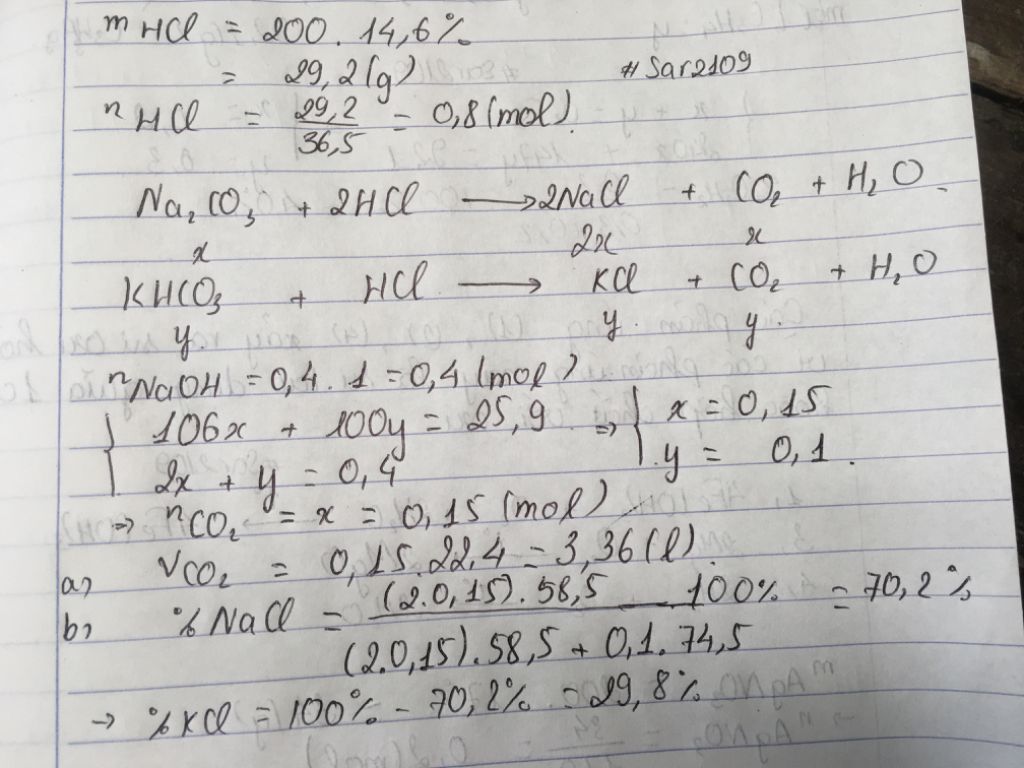 mHCl = 200 . 14,6%
= 29,2 (g)
#Sar2109
nHCl = 29,2/36,5 = 0,8 (mol).
Na₂CO₃ + 2HCl → 2NaCl + CO₂ + H₂O
x 2x x
KHCO₃ + HCl → KCl + CO₂ + H₂O
y. y. y.
nNaOH = 0,4 . 1 = 0,4 (mol)
{ 106x + 100y = 25,9 => { x = 0,15
2x + y = 0,4 y = 0,1.
=> nCO₂ = x = 0,15 (mol)
a, VCO₂ = 0,15.22,4 = 3,36 (l).
b, %NaCl = (2.0,15).58,5 / (2.0,15).58,5 + 0,1.74,5 100% = 70,2%
→ %KCl = 100% - 70,2% = 29,8%